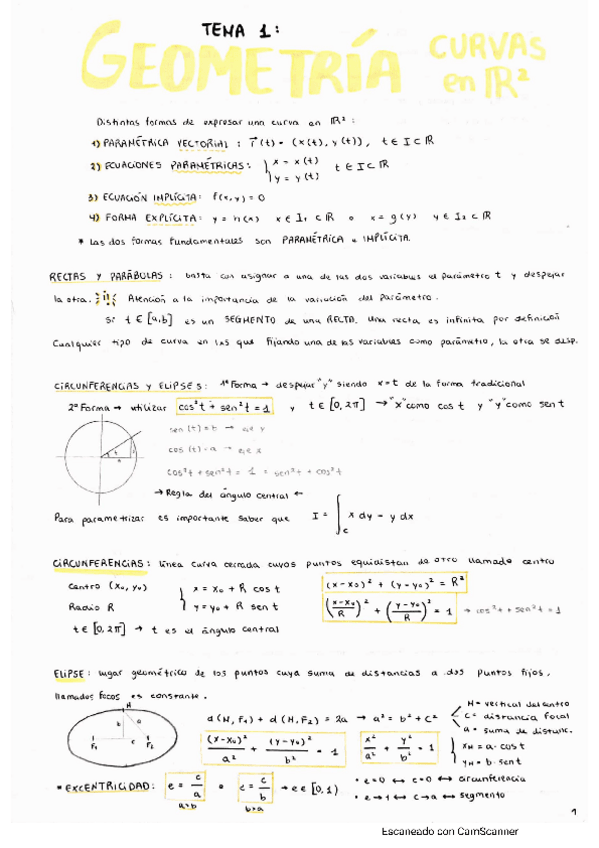 TEMA 1:
GEOMETRÍA CURVAS en ℝ²
Distintas formas de expresar una curva en ℝ²:
1) PARAMÉTRICA VECTORIAL: r⃗(t) = (x(t), y(t)), t ∈ I ⊂ ℝ
2) ECUACIONES PARAMÉTRICAS: { x = x(t) t ∈ I ⊂ ℝ
y = y(t)
3) ECUACIÓN IMPLÍCITA: f(x,y) = 0
4) FORMA EXPLÍCITA: y = h(x) x ∈ I₁ ⊂ ℝ o x = g(y) y ∈ I₂ ⊂ ℝ
* Las dos formas fundamentales son PARAMÉTRICA e IMPLÍCITA.
RECTAS Y PARÁBULAS: basta con asignar a una de las dos variables el parámetro t y despejar
la otra. ¡!! Atención a la importancia de la variación del parámetro.
Si t ∈ [a,b] es un SEGMENTO de una RECTA. Una recta es infinita por definición
Cualquier tipo de curva en las que fijando una de las variables como parámetro, la otra se desp.
CIRCUNFERENCIAS Y ELIPSES: 1ª Forma → despejar "y" siendo x=t de la forma tradicional
2ª Forma → utilizar cos²t + sen²t = 1 y t ∈ [0, 2π] → "x" como cos t y "y" como sen t
sen(t) = b → eje y
cos(t) = a → eje x
cos²t + sen²t = 1 = sen²t + cos²t
→ Regla del ángulo central ←
Para parametrizar es importante saber que I = ∫c x dy - y dx
CIRCUNFERENCIAS: línea curva cerrada cuyos puntos equidistan de otro llamado centro
Centro (x₀, y₀) { x = x₀ + R cos t (x-x₀)² + (y-y₀)² = R²
Radio R y = y₀ + R sen t ((x-x₀)/R)² + ((y-y₀)/R)² = 1 → cos²t + sen²t = 1
t ∈ [0, 2π] → t es el ángulo central
ELIPSE: lugar geométrico de los puntos cuya suma de distancias a dos puntos fijos,
llamados focos es constante.
H
b a
F₁ c F₂
d(H, F₁) + d(H, F₂) = 2a → a² = b² + c²
H = vertical del centro
c = distancia focal
a = suma de distanc.
(x-x₀)²/a² + (y-y₀)²/b² = 1 x²/a² + y²/b² = 1 { xH = a·cos t
yH = b·sen t
* EXCENTRICIDAD: e = c/a o e = c/b → e ∈ [0,1) • e=0 ↔ c=0 ↔ circunferencia
a>b b>a • e→1 ↔ c→a ↔ segmento
1
Escaneado con CamScanner